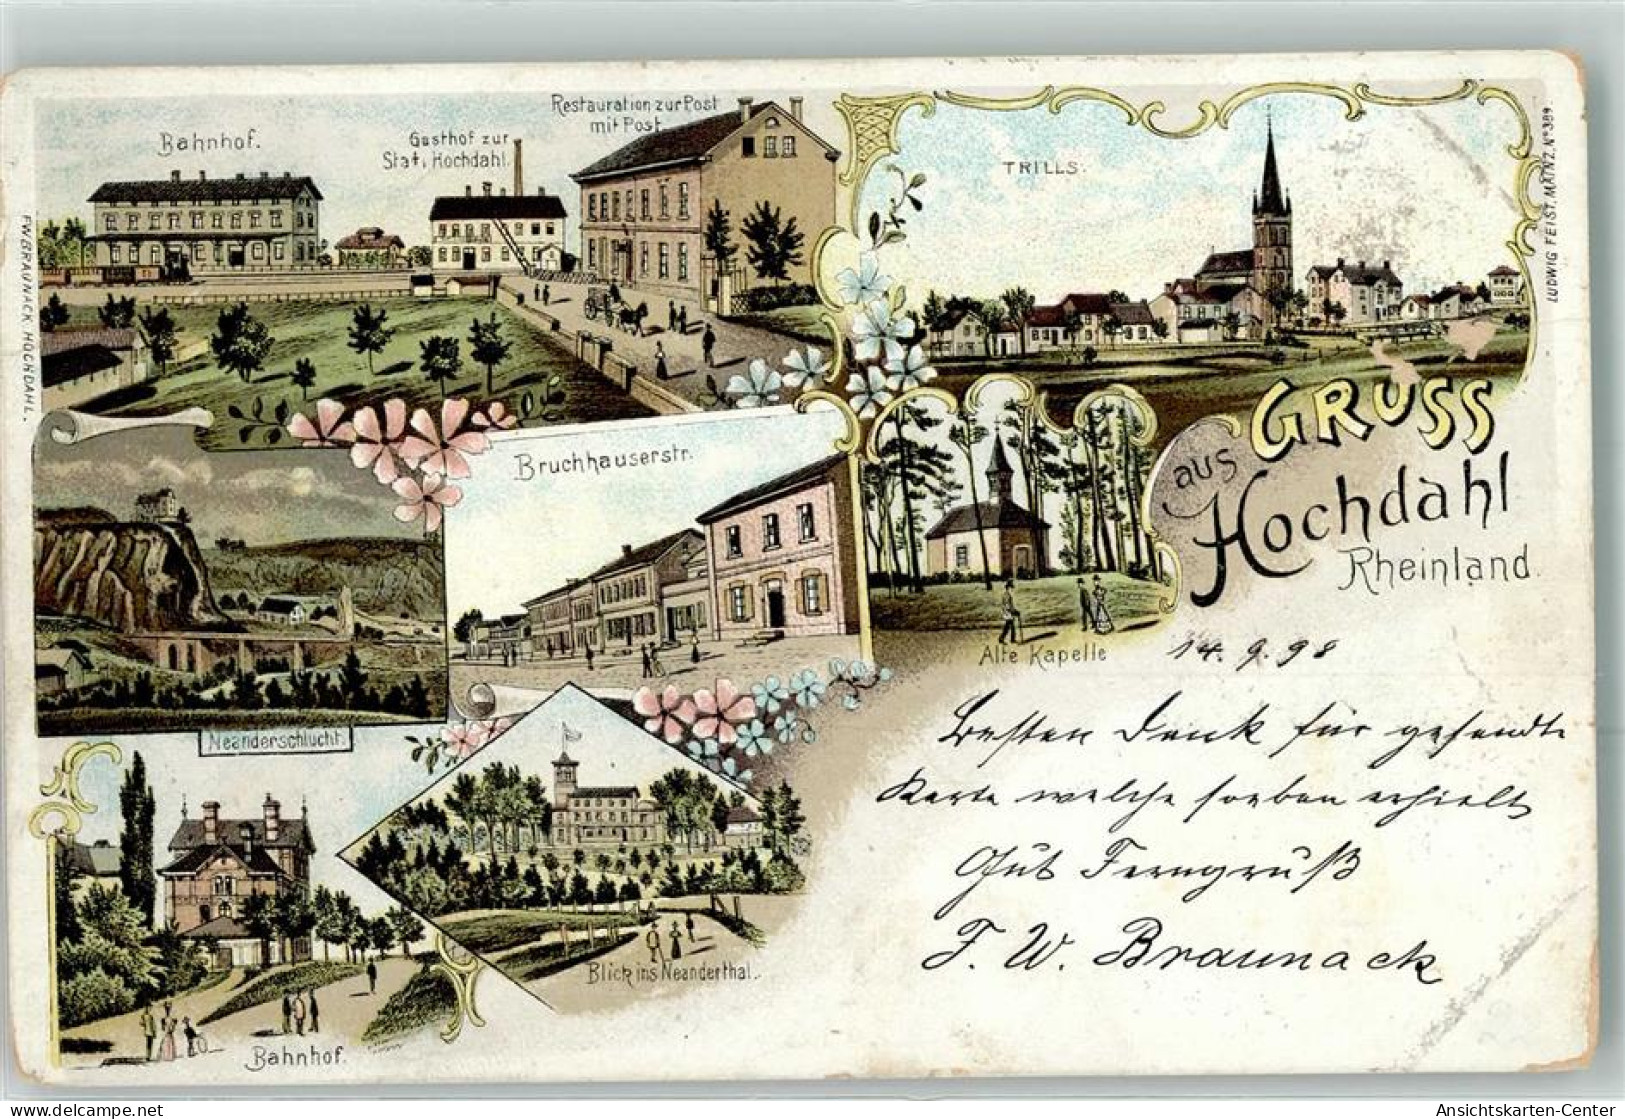 Bahnhof.
Gasthof zur
Stat. Hochdahl.
Restauration zur Post
mit Post
TRILLS.
LUDWIG FEIST, MAINZ, No 384
F.W. BRAUNACK, HOCHDAHL.
GRUSS
aus
Hochdahl
Rheinland.
Bruchhauserstr.
Alte Kapelle
Neanderschlucht.
14. 9. 98
Besten Dank für gesandte
Karte welche soeben erhielt
Gut Ferngruß
F. W. Braunack
Blick ins Neanderthal.
Bahnhof.
delcampe.net
Ansichtskarten-Center